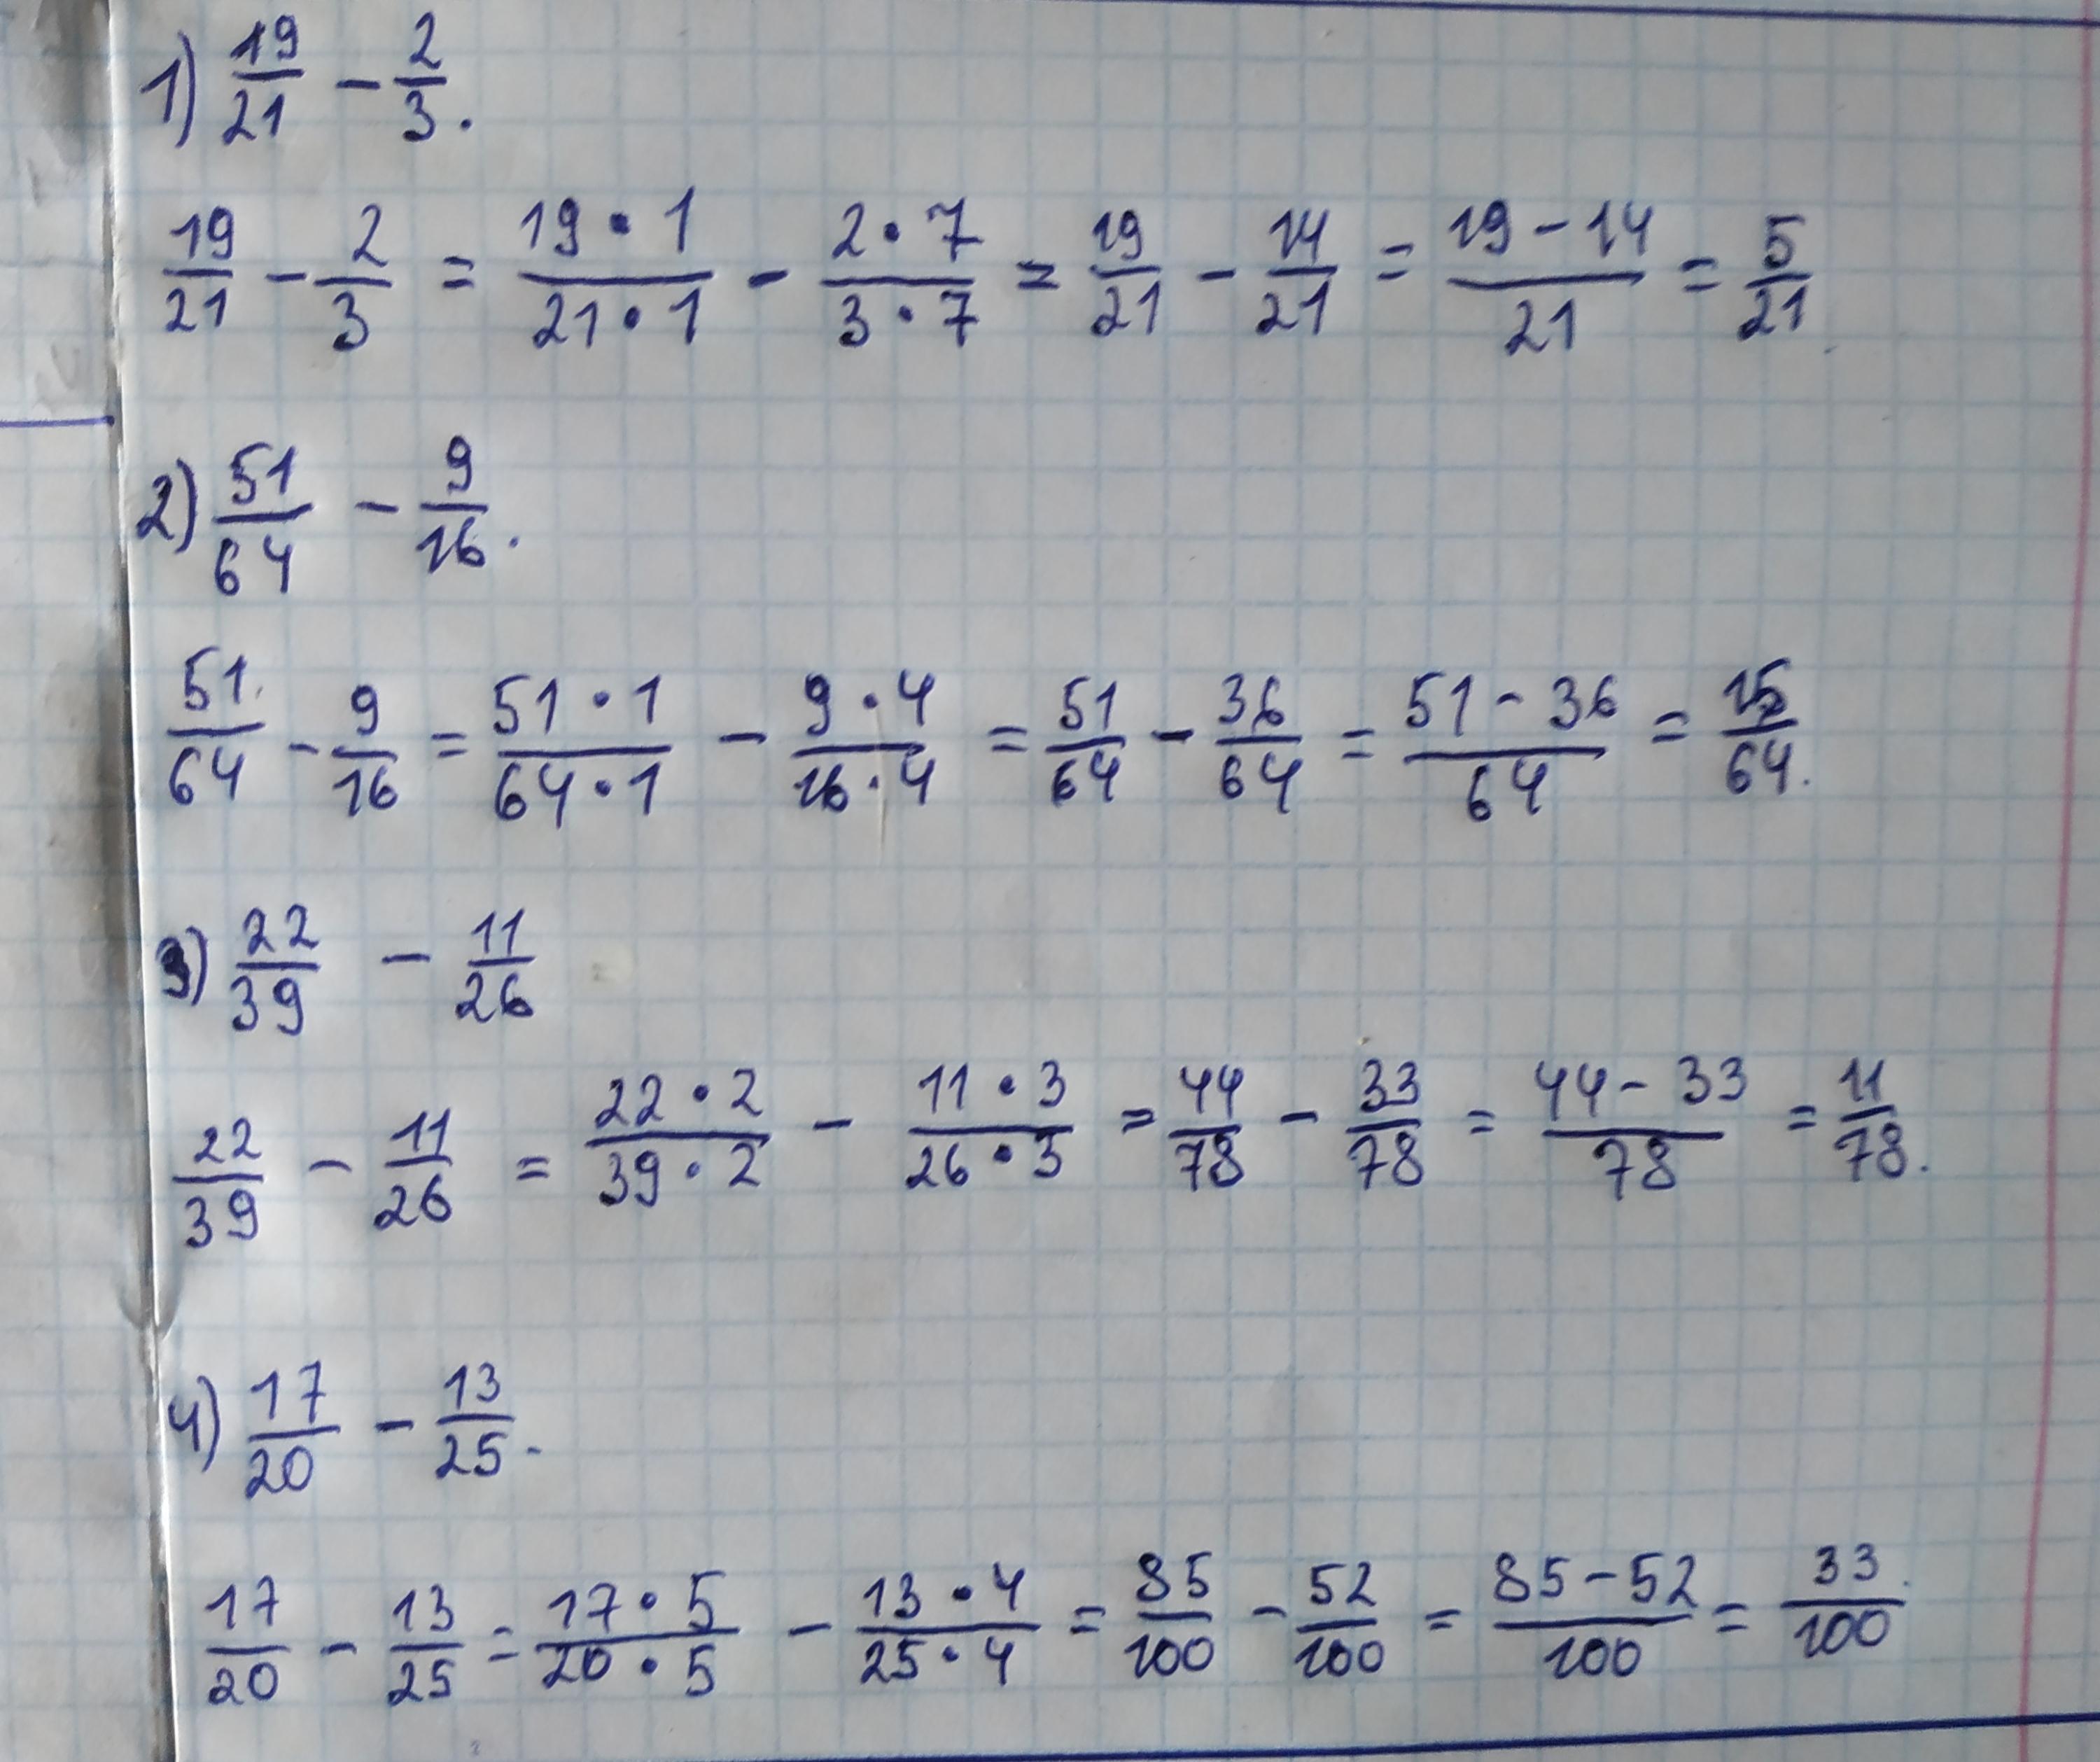 1) 19/21 - 2/3.
19/21 - 2/3 = 19·1/21·1 - 2·7/3·7 = 19/21 - 14/21 = 19-14/21 = 5/21
2) 51/64 - 9/16.
51/64 - 9/16 = 51·1/64·1 - 9·4/16·4 = 51/64 - 36/64 = 51-36/64 = 15/64.
3) 22/39 - 11/26
22/39 - 11/26 = 22·2/39·2 - 11·3/26·3 = 44/78 - 33/78 = 44-33/78 = 11/78.
4) 17/20 - 13/25.
17/20 - 13/25 = 17·5/20·5 - 13·4/25·4 = 85/100 - 52/100 = 85-52/100 = 33/100.